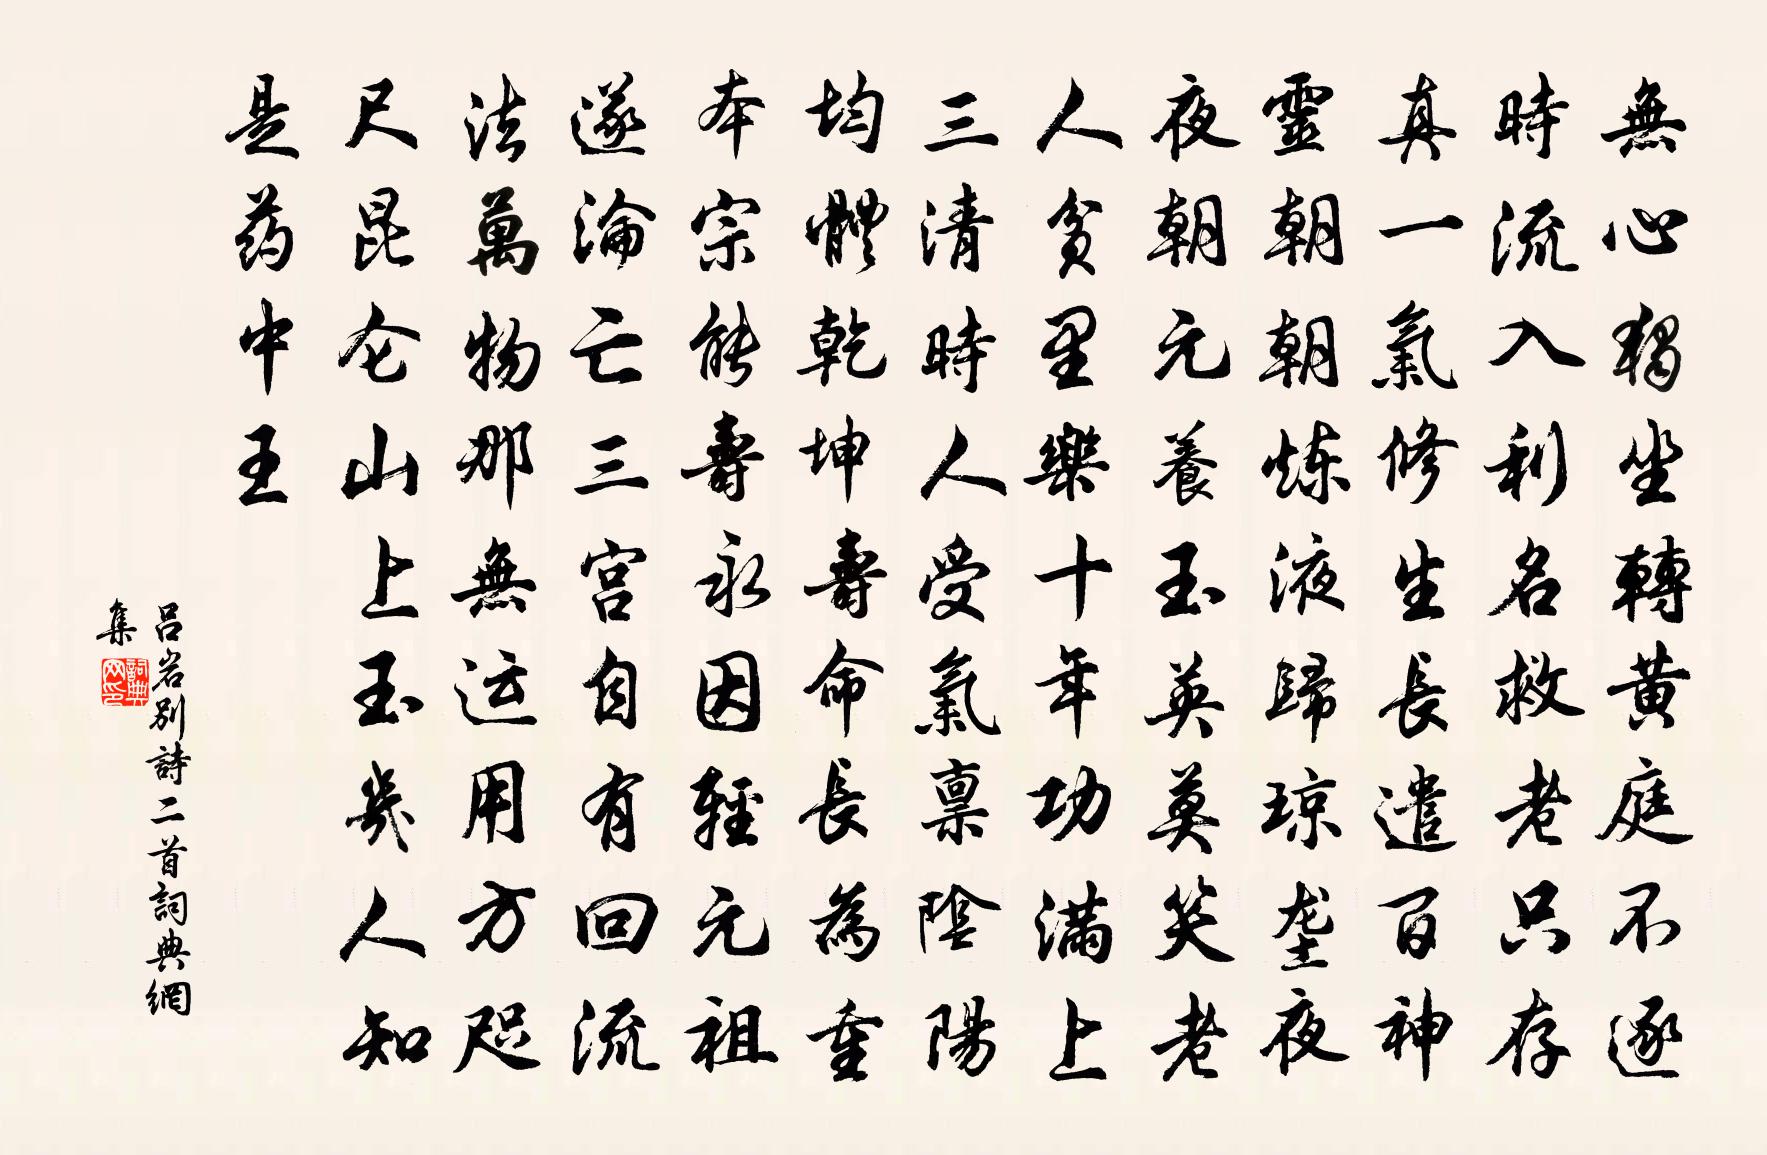 無心獨坐轉黃庭不逐
時流入利名救老只存
真一氣修生長遣百神
靈朝朝炼液歸琼垄夜
夜朝元養玉英莫笑老
人贫里樂十年功满上
三清時人受氣禀陰陽
均體乾坤壽命長為重
本宗能壽永因輕元祖
遂淪亡三宫自有回流
法萬物那無运用方咫
尺昆仑山上玉幾人知
是药中王
吕岩别詩二首詞典網
集
詞典网印